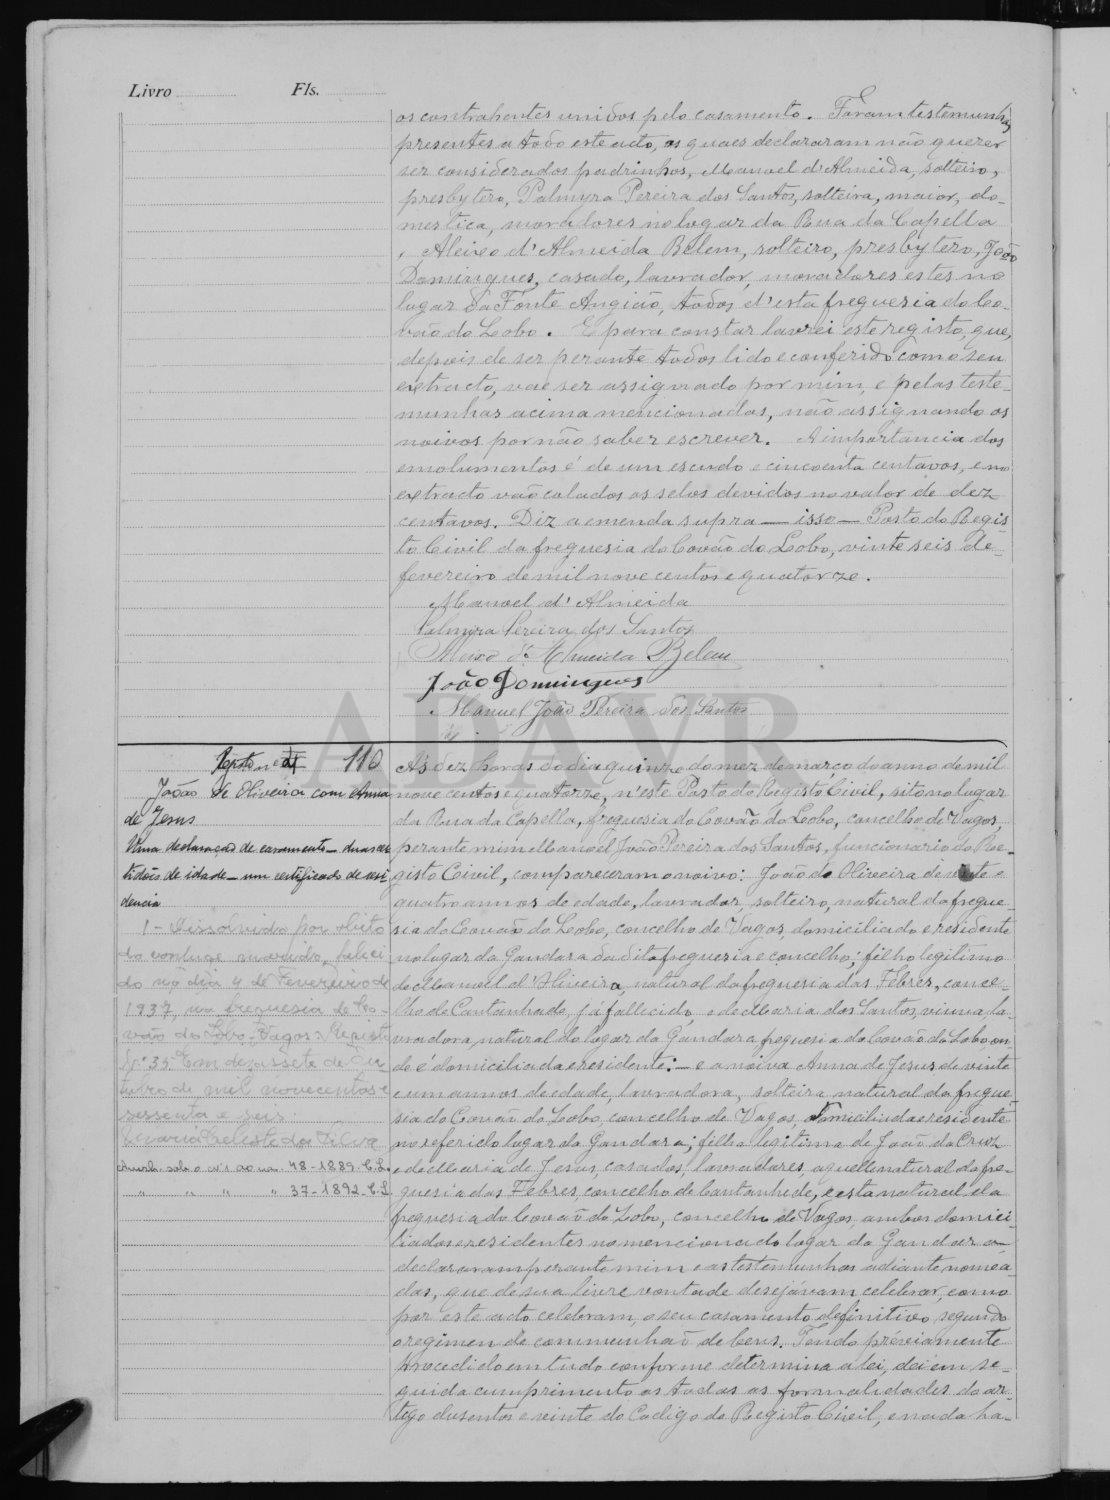 Livro Fls.
os contrahentes unidos pelo casamento. Foram testemunhas
presentes a todo este acto, os quaes declararam não querer
ser considerados padrinhos, Manoel d'Almeida, solteiro,
presbytero, Palmyra Pereira dos Santos, solteira, maior, do-
mestica, moradores no lugar da Rua da Capella
, Aleixo d'Almeida Belem, solteiro, presbytero, João
Domingues, casado, lavrador, moradores estes no
lugar da Fonte Angião, todos d'esta freguesia do Co-
vão do Lobo. E para constar lavrei este registo, que,
depois de ser perante todos lido e conferido com o seu
extracto, vae ser assignado por mim, e pelas teste-
munhas acima mencionadas, não assignando os
noivos por não saber escrever. A importancia dos
emolumentos é de um escudo e cincoenta centavos, e no
extracto vão colados os selos devidos no valor de dez
centavos. Diz a emenda supra — isso — Posto do Regis
to Civil da freguesia do Covão do Lobo, vinte seis de
fevereiro de mil nove centos e quatorze.
Manoel d'Almeida
Palmyra Pereira dos Santos
Aleixo d'Almeida Belem
João Domingues
Manuel João Pereira dos Santos
ADAVR
Registo nº 110
João de Oliveira com Anna
de Jesus
Uma declaração de casamento — duas cer
tidões de idade — um certificado de resi
dencia
1 - Dissolvido por obito
do conjuge marido, faleci
do no dia 4 de Fevereiro de
1937, na freguesia de Co-
vão do Lobo - Vagos. Registo
Nº 35. Em dezassete de Ou
tubro de mil novecentos e
sessenta e seis.
Maria Celeste da Silva
sob o Nº 1 ao nº 48-1889-C.L.
" " " " 37-1892-C.L.
Ás dez horas do dia quinze do mez de março do anno de mil
nove centos e quatorze, n'este Posto do Registo Civil, sito no lugar
da Rua da Capella, freguesia do Covão do Lobo, concelho de Vagos,
perante mim Manoel João Pereira dos Santos, funcionario do Re-
gisto Civil, compareceram o noivo: João de Oliveira de vinte e
quatro annos de edade, lavrador, solteiro, natural da fregue-
sia do Covão do Lobo, concelho de Vagos, domiciliado e residente
no lugar da Gandara da dita freguesia e concelho; filho legitimo
de Manoel d'Oliveira, natural da freguesia das Febres, conce-
lho de Cantanhede, já fallecido, e de Maria dos Santos, viuva, la-
vradora, natural do lugar da Gandara, freguesia do Covão do Lobo on
de é domiciliada e residente: — e a noiva Anna de Jesus de vinte
e um annos de edade, lavradora, solteira, natural da fregue-
sia do Covão do Lobo, concelho de Vagos, domiciliada e residente
no referido lugar da Gandara; filha legitima de João da Cruz
e de Maria de Jesus, casados, lavradores, aquelle natural da fre-
guesia das Febres, concelho de Cantanhede, e esta natural da
freguesia do Covão do Lobo, concelho de Vagos, ambos domici
liados e residentes no mencionado lugar da Gandara
declararam perante mim e as testemunhas adiante nomea
das, que de sua livre vontade desejávam celebrar, como
por este acto celebram, o seu casamento definitivo, segundo
o regimen de communhão de bens. Tendo préviamente
procedido em tudo conforme determina a lei, dei em se-
guida cumprimento as todas as formalidades do ar-
tigo dusentos e vinte do Codigo do Registo Civil, e nada ha-